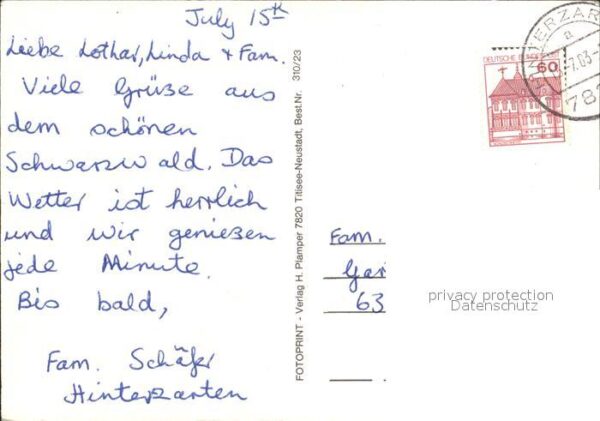 July 15th
Liebe Lothar, Linda + Fam.
Viele Grüße aus
dem schönen
Schwarzwald. Das
Wetter ist herrlich
und wir genießen
jede Minute.
Bis bald,
Fam. Schäfer
Hinterzarten
FOTOPRINT - Verlag H. Plamper 7820 Titisee-Neustadt, Best.Nr. 310/23
DEUTSCHE BUNDESPOST
60
a
Fam.
63
privacy protection
Datenschutz